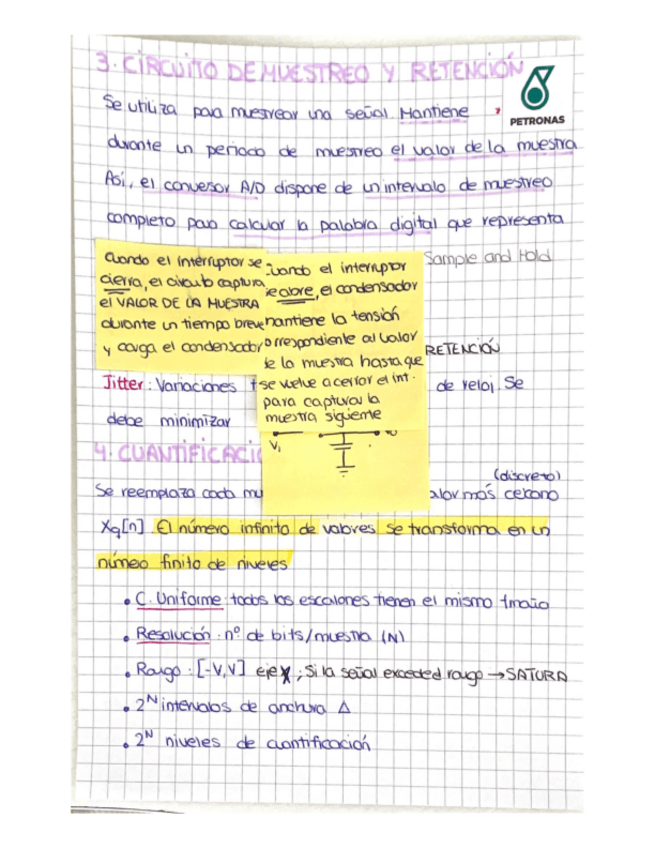 3. CIRCUITO DE MUESTREO Y RETENCIÓN
PETRONAS
Se utiliza para muestrear una señal Mantiene
durante un periodo de muestreo el valor de la muestra
Así, el conversor A/D dispone de un intervalo de muestreo
completo para calcular la palabra digital que representa
Sample and Hold
Cuando el interruptor se
cierra, el circuito captura
el VALOR DE LA MUESTRA
durante un tiempo breve
y carga el condensador
cuando el interruptor
se abre, el condensador
mantiene la tensión
correspondiente al valor
de la muestra hasta que
se vuelve a cerrar el int.
para capturar la
muestra siguiente
Vi
RETENCIÓN
Jitter: Variaciones de reloj. Se
debe minimizar
4. CUANTIFICACIÓ
(discreto)
Se reemplaza cada valor más cercano
Xq[n]. El número infinito de valores se transforma en un
número finito de niveles
• C. Uniforme: todos los escalones tienen el mismo tmaño
• Resolución: nº de bits/muestra (N)
• Rango: [-V,V] eje X; Si la señal excede el rango → SATURA
• 2^N intervalos de anchura Δ
• 2^N niveles de cuantificación